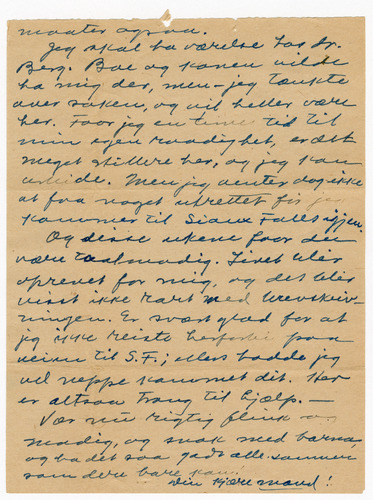 maater ogsaa.
Jeg skal ha værelse hos Dr.
Berg. Boe og konen vilde
ha mig der, men jeg tænkte
over saken, og vil heller være
her. Faar jeg en time tid til
min egen raadighet, er det
meget stillere her, og jeg kan
arbeide. Men jeg venter dog ikke
at faa noget utrettet før jeg
kommer til Sioux Falls igjen.
Og disse ukene faar du
være taalmodig. Livet blir
oprevet for mig, og det blir
visst ikke rart med brevskriv-
ningen. Er svært glad for at
jeg ikke reiste herfra paa
veien til S.F.; ellers hadde jeg
vel neppe kommet dit. Her
er altsaa trang til hjælp. —
Vær nu rigtig flink og
modig, og snak med barna,
og ha det saa godt alle sammen
som dere bare kan!
Din kjære mand!